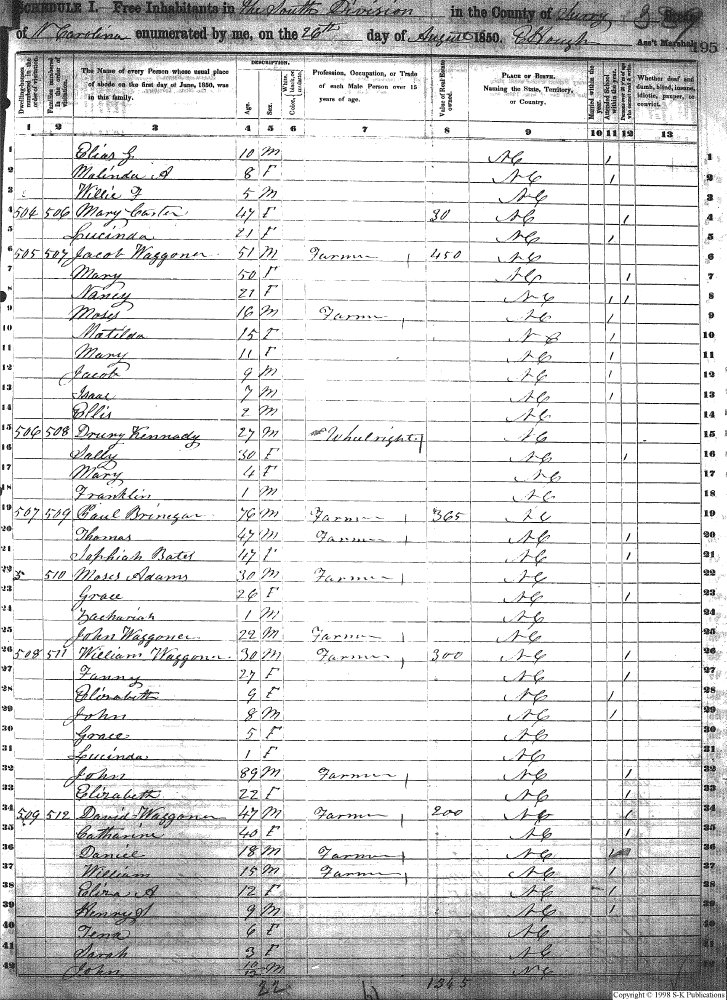 SCHEDULE I. Free Inhabitants in the South Division in the County of Surry State
of N Carolina enumerated by me, on the 26th day of August 1850. Ass't Marshal 195
Dwelling-houses numbered in the order of visitation.
Families numbered in the order of visitation.
The Name of every Person whose usual place of abode on the first day of June, 1850, was in this family.
DESCRIPTION.
Age.
Sex.
White, black, or mulatto.
Color
Profession, Occupation, or Trade of each Male Person over 15 years of age.
Value of Real Estate owned.
PLACE OF BIRTH. Naming the State, Territory, or Country.
Married within the year.
Attended School within the year.
Whether deaf and dumb, blind, insane, idiotic, pauper, or convict.
1 2 3 4 5 6 7 8 9 10 11 12 13
1 Elias G 10 M NC / 1
2 Malinda A 8 F NC / 2
3 Willie F 5 M NC 3
4 504 506 Mary Carter 47 F 30 NC / 4
5 Lucinda 21 F NC / 5
6 505 507 Jacob Waggoner 51 M Farmer 450 NC 6
7 Mary 50 F NC / 7
8 Nancy 21 F NC / / 8
9 Moses 16 M Farmer NC / 9
10 Matilda 15 F NC / 10
11 Mary 11 F NC / 11
12 Jacob 9 M NC / 12
13 Isaac 7 M NC / 13
14 Ellis 2 M NC 14
15 506 508 Drury Kennady 27 M Wheelright NC 15
16 Sally 30 F NC / 16
17 Mary 4 F NC 17
18 Franklin 1 M NC 18
19 507 509 Paul Brinegar 76 M Farmer 365 NC 19
20 Thomas 47 M Farmer NC / 20
21 Bates 47 F NC / 21
22 510 Moses Adams 30 M Farmer NC 22
23 Grace 26 F NC / 23
24 Zachariah 1 M NC 24
25 John Waggoner 22 M Farmer NC 25
26 508 511 William Waggoner 30 M Farmer 300 NC / 26
27 Fanny 27 F NC / 27
28 Elizabeth 9 F NC / 28
29 John 8 M NC / 29
30 Grace 5 F NC 30
31 Lucinda 1 F NC 31
32 John 89 M Farmer NC / 32
33 Elizabeth 22 F NC / 33
34 509 512 David Waggoner 47 M Farmer 200 NC / 34
35 Catharine 40 F NC / 35
36 Daniel 18 M Farmer NC 36
37 William 15 M Farmer NC / 37
38 Eliza A 12 F NC / 38
39 Henry 9 M NC / 39
40 Tena 6 F NC 40
41 Sarah 3 F NC 41
42 John 10/12 M NC 42
22 1345
Copyright © 1998 S-K Publications